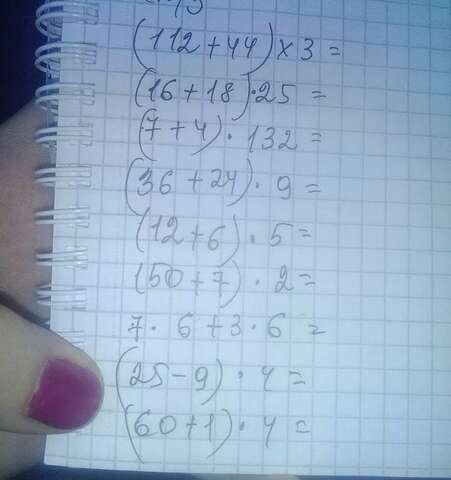 (112+44)×3=
(16+18)·25=
(7+4)·132=
(36+24)·9=
(12+6)·5=
(50+7)·2=
7·6+3·6=
(25-9)·4=
(60+1)·4=